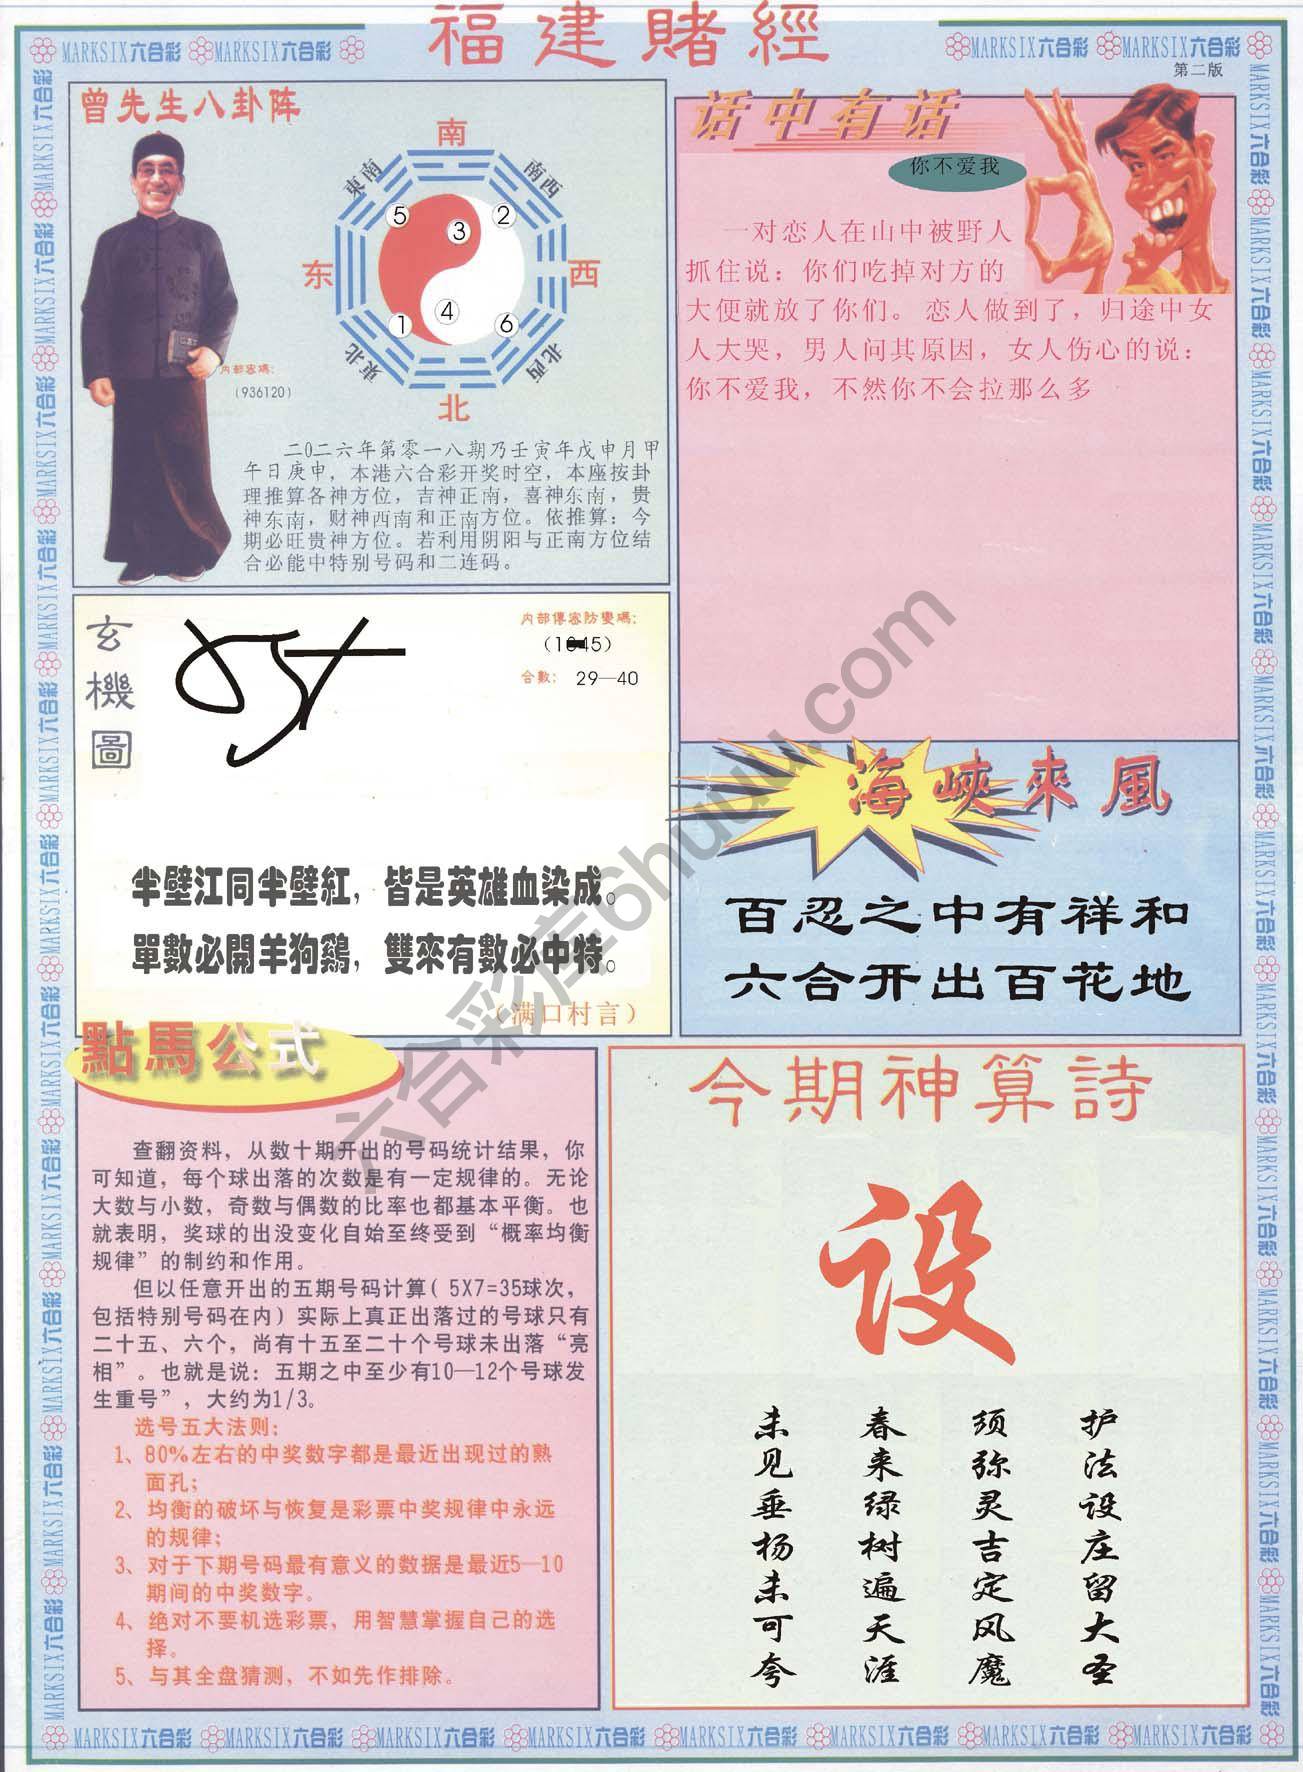 福建賭經
MARKSIX六合彩 MARKSIX六合彩
MARKSIX六合彩 MARKSIX六合彩
第二版
曾先生八卦阵
南
東南
南西
5
3
2
东
西
4
1
6
東北
北西
北
内部密碼:
(936120)
二0二六年第零一八期乃壬寅年戊申月甲
午日庚申，本港六合彩开奖时空，本座按卦
理推算各神方位，吉神正南，喜神东南，贵
神东南，财神西南和正南方位。依推算：今
期必旺贵神方位。若利用阴阳与正南方位结
合必能中特别号码和二连码。
话中有话
你不爱我
一对恋人在山中被野人
抓住说：你们吃掉对方的
大便就放了你们。恋人做到了，归途中女
人大哭，男人问其原因，女人伤心的说：
你不爱我，不然你不会拉那么多
玄機圖
内部傳密防變碼:
合數: 29—40
半壁江同半壁紅，皆是英雄血染成。
單數必開羊狗鷄，雙來有數必中特。
（满口村言）
海峽來風
百忍之中有祥和
六合开出百花地
點馬公式
查翻资料，从数十期开出的号码统计结果，你
可知道，每个球出落的次数是有一定规律的。无论
大数与小数，奇数与偶数的比率也都基本平衡。也
就表明，奖球的出没变化自始至终受到“概率均衡
规律”的制约和作用。
但以任意开出的五期号码计算( 5X7=35球次，
包括特别号码在内）实际上真正出落过的号球只有
二十五、六个，尚有十五至二十个号球未出落“亮
相”。也就是说：五期之中至少有10—12个号球发
生重号”，大约为1/3。
选号五大法则：
1、80%左右的中奖数字都是最近出现过的熟
面孔；
2、均衡的破坏与恢复是彩票中奖规律中永远
的规律；
3、对于下期号码最有意义的数据是最近5—10
期间的中奖数字。
4、绝对不要机选彩票，用智慧掌握自己的选
择。
5、与其全盘猜测，不如先作排除。
今期神算詩
设
护法设庄留大圣
须弥灵吉定风魔
春来绿树遍天涯
未见垂杨未可夸
MARKSIX六合彩 MARKSIX六合彩 MARKSIX六合彩 MARKSIX六合彩 MARKSIX六合彩 MARKSIX六合彩 MARKSIX六合彩 MARKSIX六合彩
六合彩库6huuu.com